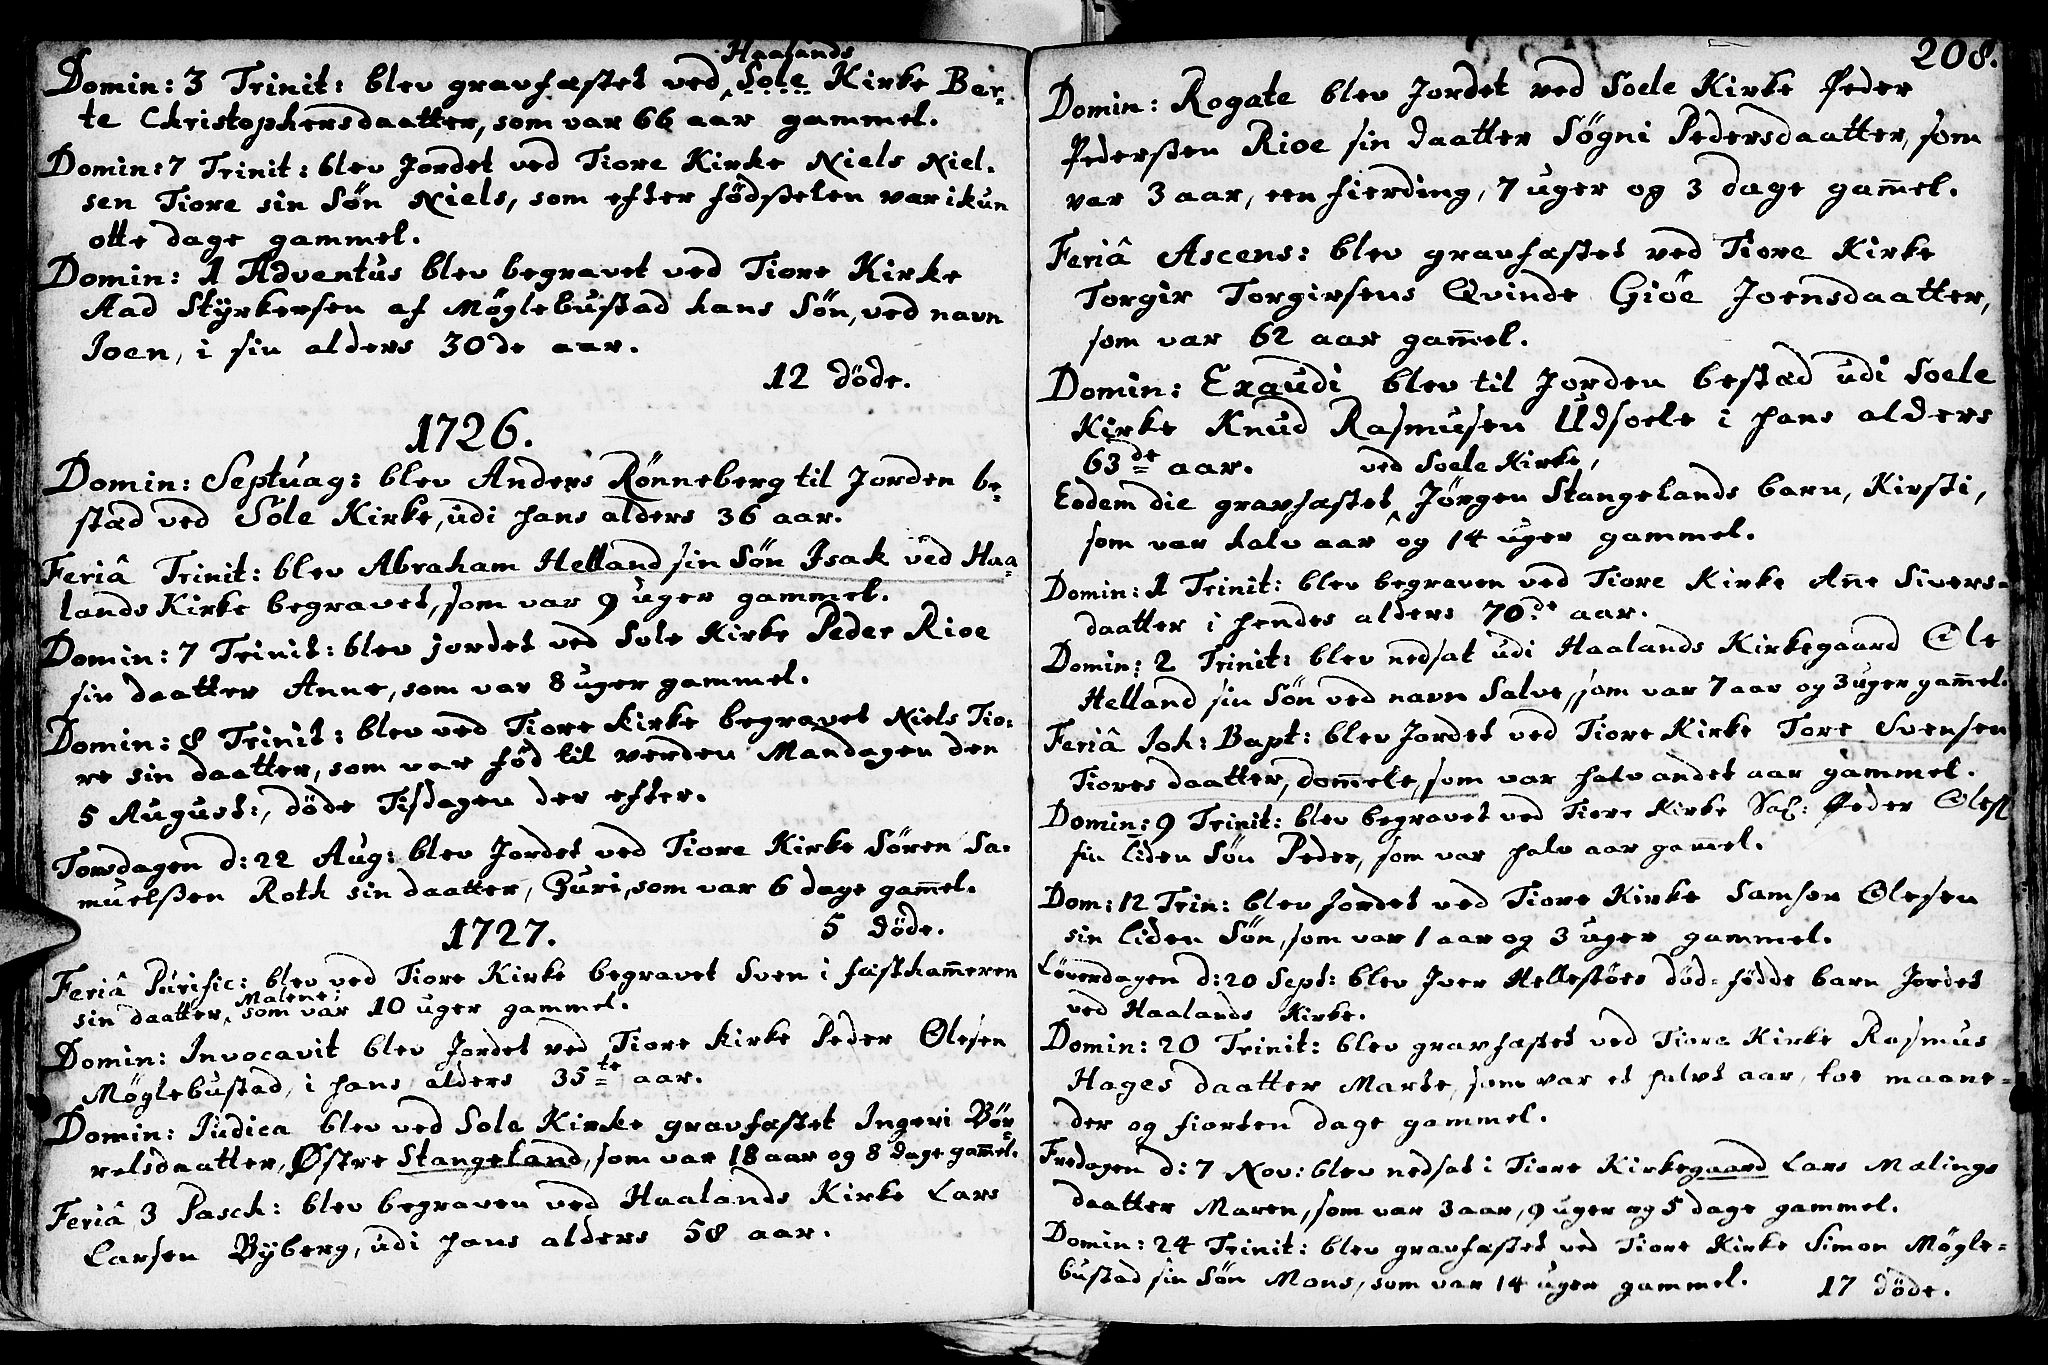 Haalands
Domin: 3 Trinit: blev gravfæstet ved Sole Kirke Ber-
te Christophersdaatter, som var 66 aar gammel.
Domin: 7 Trinit: blev Jordet ved Tiore Kirke Niels Niel-
sen Tiore sin Sön Niels, som efter födßelen var ikun
otte dage gammel.
Domin: 1 Adventus blev begravet ved Tiore Kirke
Aad Styrkersen af Möglebustad hans Sön, ved navn
Joen, i sin alders 30de aar.
12 döde.
1726.
Domin: Septuag: blev Anders Rönneberg til Jorden be-
stæd ved Sole Kirke, udi hans alders 36 aar.
Feriâ Trinit: blev Abraham Helland sin Sön Isak ved Haa-
lands Kirke begravet, som var 9 uger gammel.
Domin: 7 Trinit: blev jordet ved Sole Kirke Peder Rioe
sin daatter Anne, som var 8 uger gammel.
Domin: 8 Trinit: blev ved Tiore kirke begravet Niels Tio-
re sin daatter, som var född til verden Mandagen den
5 August:, döde Tisdagen der efter.
Torsdagen d: 22 Aug: blev Jordet ved Tiore Kirke Sören Sa-
muelßen Roth sin daatter, Guri, som var 6 dage gam̄el.
5 döde.
1727.
Feriâ Purific: blev ved Tiore Kirke begravet Sven i fæstkam̄eren
sin daatter, Malene, som var 10 uger gammel.
Domin: Invocavit blev Jordet ved Tiore kirke Peder Olesen
Möglebustad, i hans alders 35te aar.
Domin: Judica blev ved Sole Kirke gravfæstet Ingeri Bör-
relsdaatter, Østre Stangeland, som var 18 aar og 8 dage gam̄el.
Feriâ 3 Pasch: blev begraven ved Haalands Kirke Lars
Larsen Byberg, udi hans alders 58 aar.
208.
Domin: Rogate blev Jordet ved Soele Kirke Peder
Pederßen Rioe sin daatter Sögni Pedersdaatter, som
var 3 aar, een fierding, 7 uger og 3 dage gam̄el.
Feriâ Ascens: blev gravfæstet ved Tiore Kirke
Torgir Torgirsens Qvinde Giöe Joensdaatter,
som var 62 aar gam̄el.
Domin: Exaudi blev til Jorden bestæd udi Soele
Kirke Knud Rasmusen Udsoele i hans alders
63de aar.
ved Soele Kirke,
Eodem die gravfæstet Jörgen Stangelands barn, Kirsti,
som var halv aar og 14 uger gammel.
Domin: 1 Trinit: blev begraven ved Tiore Kirke An̄e Sivers-
daatter i hendes alders 70de aar.
Domin: 2 Trinit: blev nedsat udi Haalands Kirkegaard Ole
Helland sin Sön ved navn Salve, som var 7 aar og 3 uger gam̄el.
Feriâ Joh: Bapt: blev Jordet ved Tiore Kirke Tore Svensen
Tiores daatter, dom̄ele, som var halv andet aar gammel.
Domin: 9 Trinit: blev begravet ved Tiore Kirke Sal: Peder Oles:
sin liden Sön Peder, som var halv aar gam̄el.
Dom: 12 Trin: blev Jordet ved Tiore Kirke Samson Olesen
sin liden Sön, som var 1 aar og 3 uger gammel.
Löverdagen d: 20 Sept: blev Iver Hellestöes död-födde barn Jordet
ved Haalands Kirke.
Domin: 20 Trinit: blev gravfæstet ved Tiore Kirke Rasmus
Hages daatter Marte, som var et halvt aar, toe maane-
der og fiorten dage gammel.
Fredagen d: 7 Nov: blev nedsat i Tiore Kirkegaard Lars Mælings
daatter Maren, som var 3 aar, 9 uger og 5 dage gammel.
Domin: 24 Trinit: blev gravfæstet ved Tiore Kirke Simon Mögle-
bustad sin Sön Mons, som var 14 uger gammel.
17 döde.